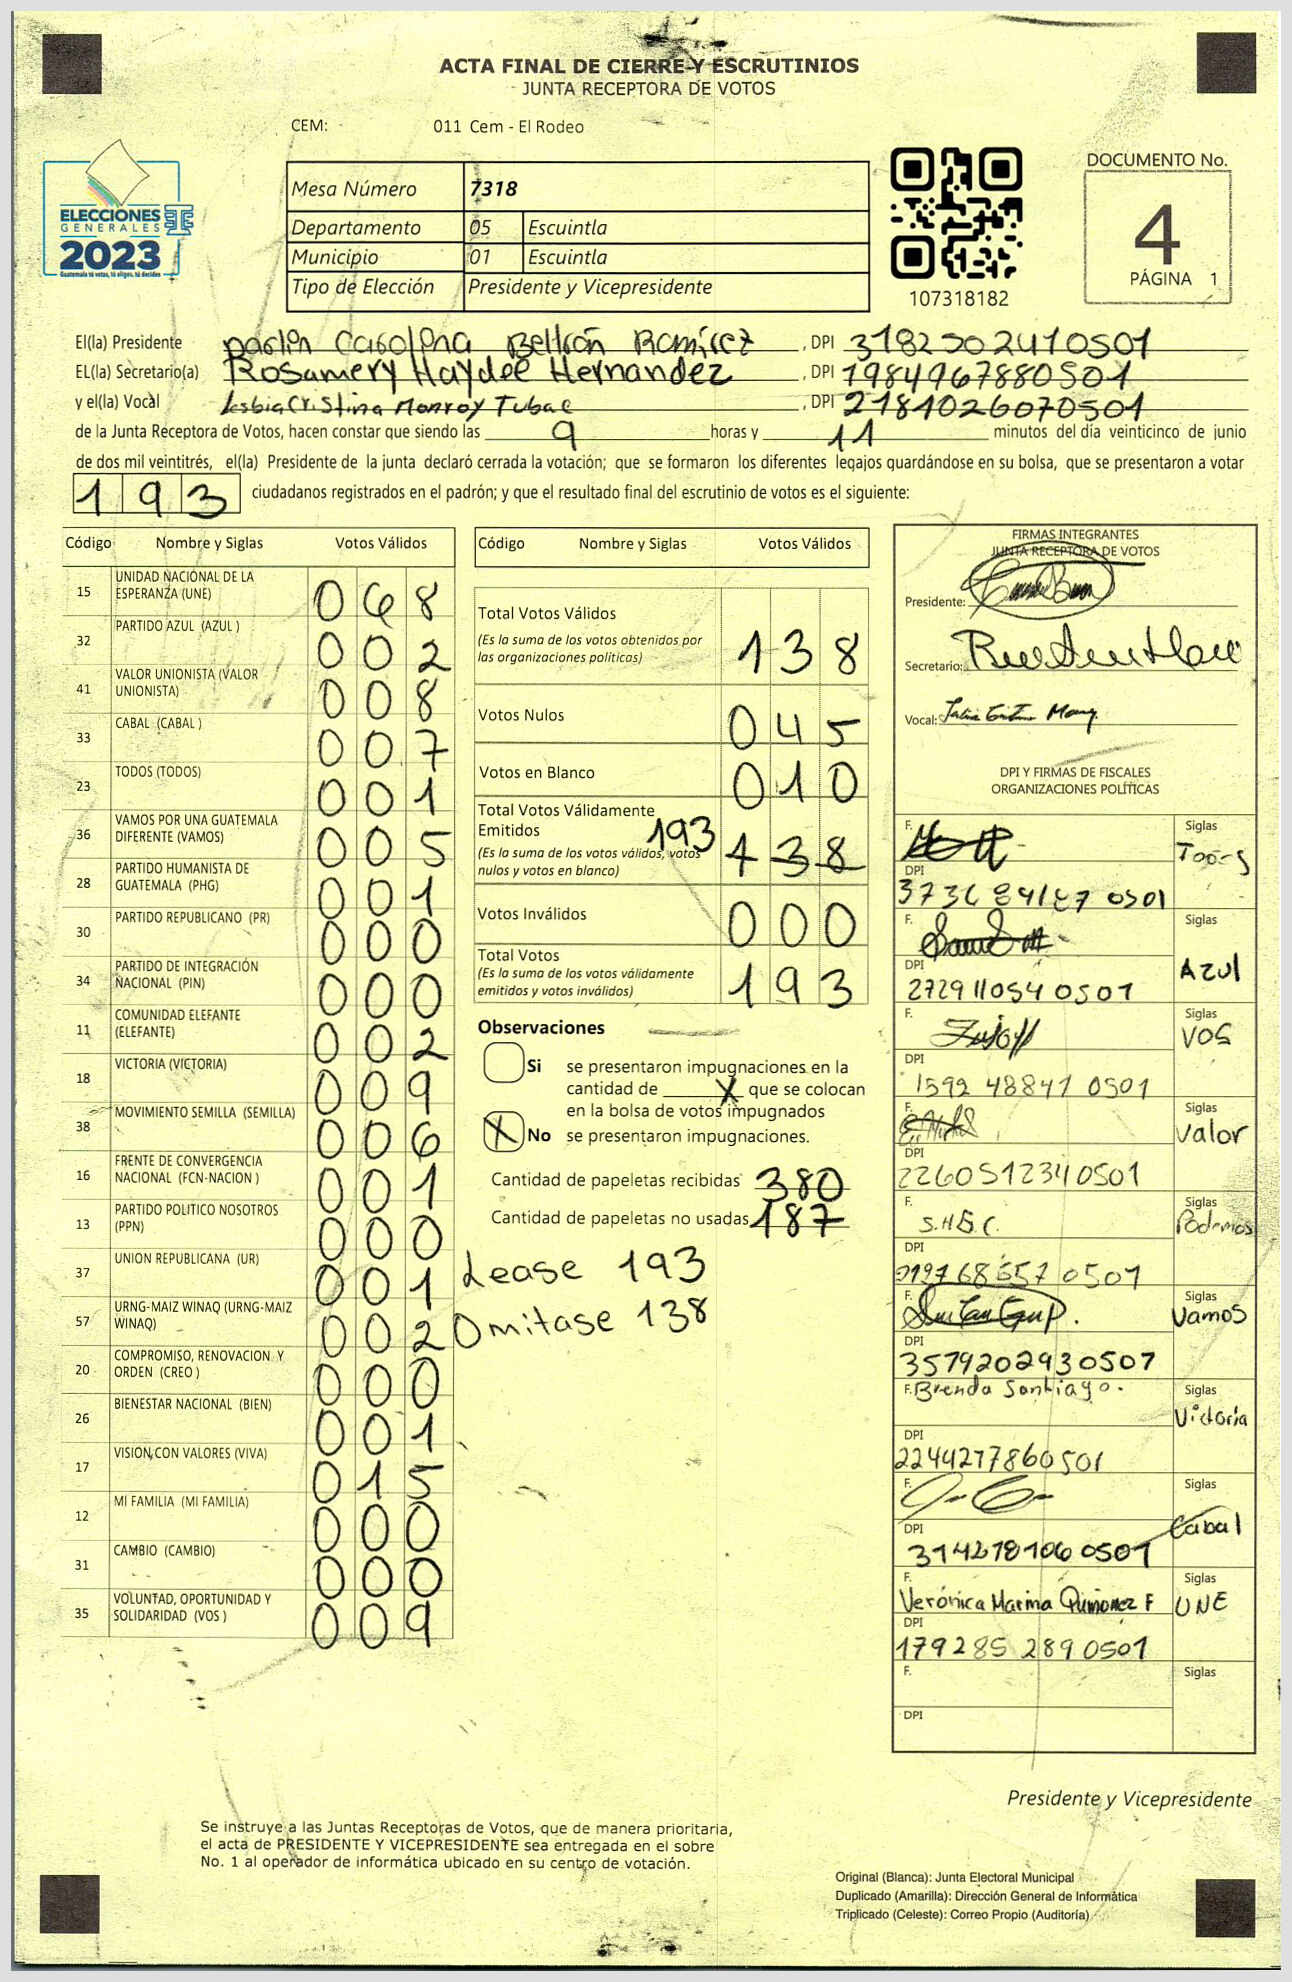 ACTA FINAL DE CIERRE Y ESCRUTINIOS
JUNTA RECEPTORA DE VOTOS
CEM: 011 Cem - El Rodeo
ELECCIONES
GENERALES
2023
Guatemala tú votas, tú eliges, tú decides
Mesa Número 7318
Departamento 05 Escuintla
Municipio 01 Escuintla
Tipo de Elección Presidente y Vicepresidente
107318182
DOCUMENTO No.
4
PÁGINA 1
El(la) Presidente Beltrán Ramírez , DPI 3182502410501
EL(la) Secretario(a) Rosamery Haydee Hernandez , DPI 1984967880501
y el(la) Vocal Lesbia Cristina Monroy Tubac , DPI 2181026070501
de la Junta Receptora de Votos, hacen constar que siendo las 9 horas y 11 minutos del día veinticinco de junio
de dos mil veintitrés, el(la) Presidente de la junta declaró cerrada la votación; que se formaron los diferentes legajos guardándose en su bolsa, que se presentaron a votar
193 ciudadanos registrados en el padrón; y que el resultado final del escrutinio de votos es el siguiente:
Código Nombre y Siglas Votos Válidos
15 UNIDAD NACIONAL DE LA ESPERANZA (UNE) 068
32 PARTIDO AZUL (AZUL ) 002
41 VALOR UNIONISTA (VALOR UNIONISTA) 008
33 CABAL (CABAL ) 007
23 TODOS (TODOS) 001
36 VAMOS POR UNA GUATEMALA DIFERENTE (VAMOS) 005
28 PARTIDO HUMANISTA DE GUATEMALA (PHG) 001
30 PARTIDO REPUBLICANO (PR) 000
34 PARTIDO DE INTEGRACIÓN NACIONAL (PIN) 000
11 COMUNIDAD ELEFANTE (ELEFANTE) 002
18 VICTORIA (VICTORIA) 009
38 MOVIMIENTO SEMILLA (SEMILLA) 006
16 FRENTE DE CONVERGENCIA NACIONAL (FCN-NACION ) 001
13 PARTIDO POLITICO NOSOTROS (PPN) 000
37 UNION REPUBLICANA (UR) 001
57 URNG-MAIZ WINAQ (URNG-MAIZ WINAQ) 002
20 COMPROMISO, RENOVACION Y ORDEN (CREO ) 000
26 BIENESTAR NACIONAL (BIEN) 001
17 VISION CON VALORES (VIVA) 015
12 MI FAMILIA (MI FAMILIA) 000
31 CAMBIO (CAMBIO) 000
35 VOLUNTAD, OPORTUNIDAD Y SOLIDARIDAD (VOS ) 009
Código Nombre y Siglas Votos Válidos
Total Votos Válidos 138
(Es la suma de los votos obtenidos por
las organizaciones políticas)
Votos Nulos 045
Votos en Blanco 010
Total Votos Válidamente
Emitidos 193 138
(Es la suma de los votos válidos, votos
nulos y votos en blanco)
Votos Inválidos 000
Total Votos 193
(Es la suma de los votos válidamente
emitidos y votos inválidos)
Observaciones
Si se presentaron impugnaciones en la
cantidad de X que se colocan
en la bolsa de votos impugnados
X No se presentaron impugnaciones.
Cantidad de papeletas recibidas 380
Cantidad de papeletas no usadas 187
Lease 193
Omitase 138
FIRMAS INTEGRANTES
JUNTA RECEPTORA DE VOTOS
Presidente:
Secretario:
Vocal:
DPI Y FIRMAS DE FISCALES
ORGANIZACIONES POLÍTICAS
F. Siglas
Todos
DPI
F. Siglas
Azul
DPI
2729110540501
F. Siglas
VOS
DPI
1592 48841 0501
F. Siglas
Valor
DPI
2260512340501
F. S.H.G.C. Siglas
Podemos
DPI
F. Siglas
Vamos
DPI
3579202930507
F. Brenda Santiago. Siglas
Victoria
DPI
2244277860501
F. Siglas
Cabal
DPI
F. Siglas
Verónica Marina Quiñonez F UNE
DPI
179285 2890501
F. Siglas
DPI
Presidente y Vicepresidente
Se instruye a las Juntas Receptoras de Votos, que de manera prioritaria,
el acta de PRESIDENTE Y VICEPRESIDENTE sea entregada en el sobre
No. 1 al operador de informática ubicado en su centro de votación.
Original (Blanca): Junta Electoral Municipal
Duplicado (Amarilla): Dirección General de Informática
Triplicado (Celeste): Correo Propio (Auditoría)